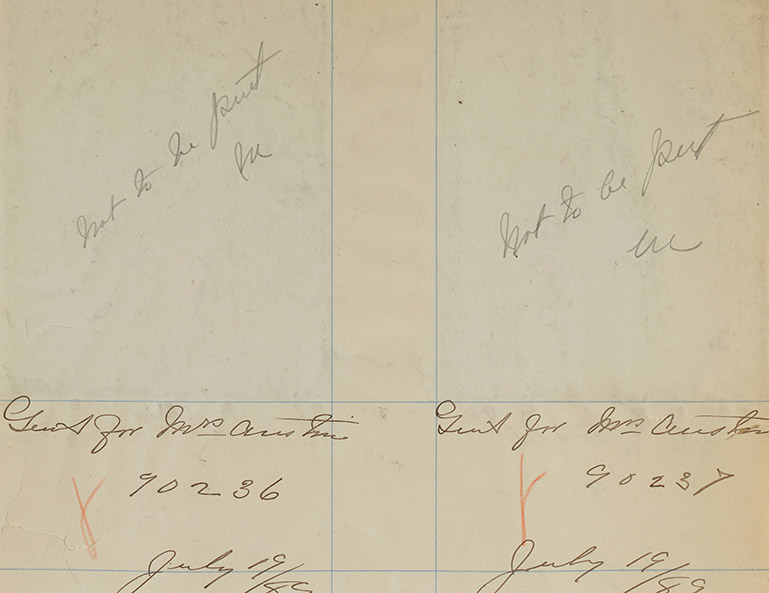 Not to be put
Not to be put
Gent for Mrs Austin
90236
July 19/89
Gent for Mrs Austin
90237
July 19/89